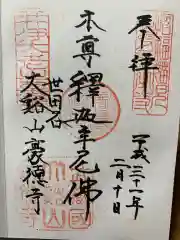 奉拝
平成三十一年
二月十日
本尊釋迦牟尼佛
世田谷
大谿山豪徳寺